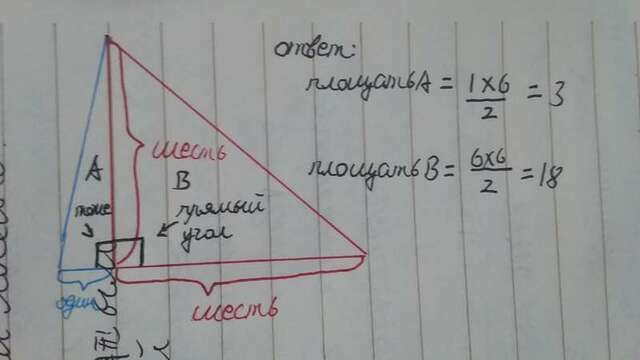 ответ:
площать A = 1×6/2 = 3
площать B = 6×6/2 = 18
шесть
A
B
тоже
прямый
угол
один
шесть